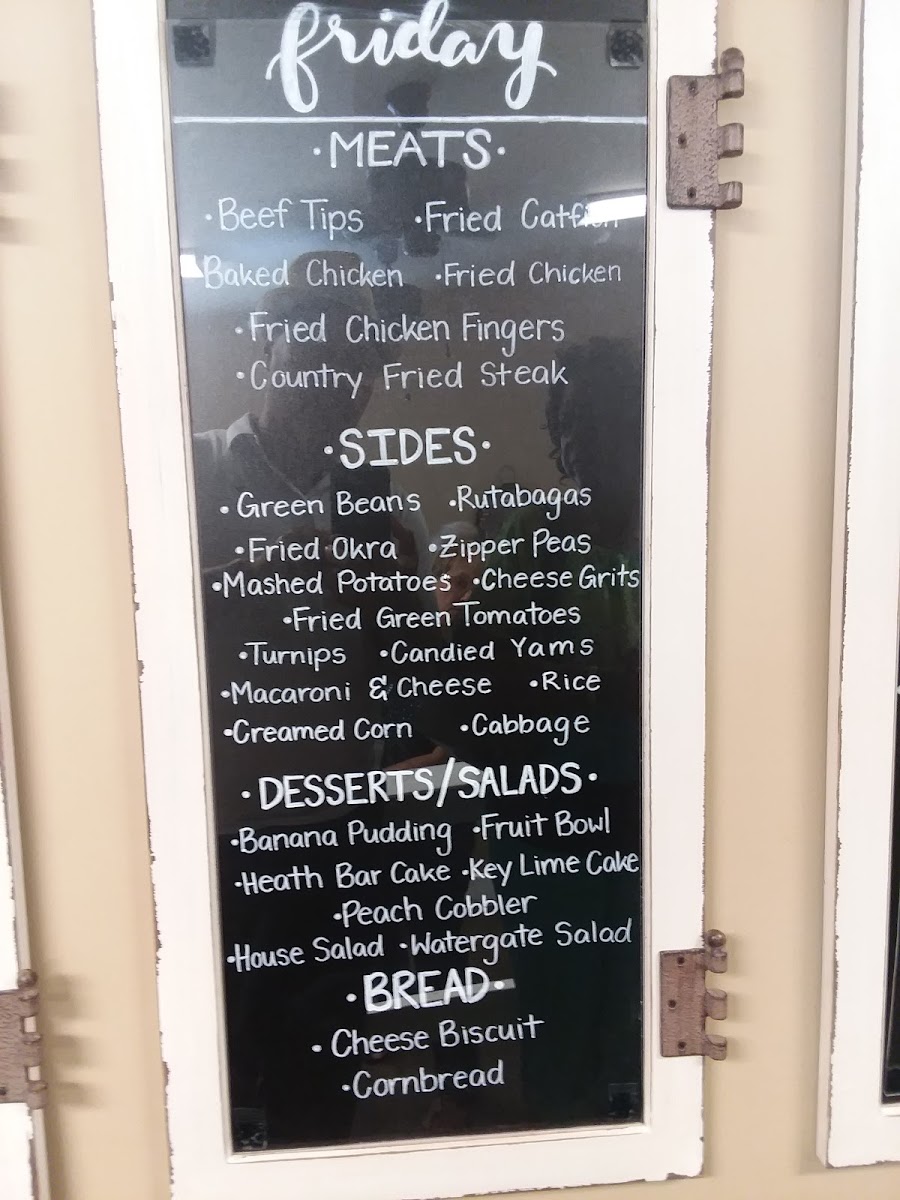 friday
·MEATS·
·Beef Tips ·Fried Catfish
Baked Chicken ·Fried Chicken
·Fried Chicken Fingers
·Country Fried Steak
·SIDES·
·Green Beans ·Rutabagas
·Fried Okra ·Zipper Peas
·Mashed Potatoes ·Cheese Grits
·Fried Green Tomatoes
·Turnips ·Candied Yams
·Macaroni & Cheese ·Rice
·Creamed Corn ·Cabbage
·DESSERTS/SALADS·
·Banana Pudding ·Fruit Bowl
·Heath Bar Cake ·Key Lime Cake
·Peach Cobbler
·House Salad ·Watergate Salad
·BREAD·
·Cheese Biscuit
·Cornbread